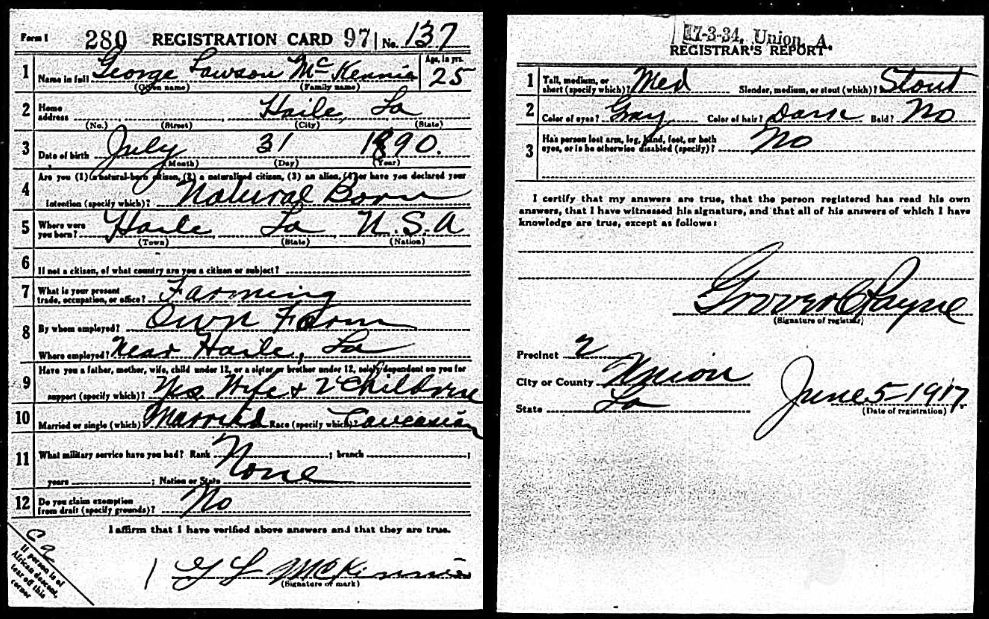 Form 1 280 REGISTRATION CARD 971 No. 137
1 Name in full George Lawson McKennie Age, in yrs. 25
(Given name) (Family name)
2 Home address Haile, La
(No.) (Street) (City) (State)
3 Date of birth July 31 1890.
(Month) (Day) (Year)
4 Are you (1) a natural-born citizen, (2) a naturalized citizen, (3) an alien, (4) or have you declared your
intention (specify which)? Natural Born
5 Where were you born? Haile La U.S.A
(Town) (State) (Nation)
6 If not a citizen, of what country are you a citizen or subject?
7 What is your present trade, occupation, or office? Farming
8 By whom employed? Own Farm
Where employed? Near Haile, La
9 Have you a father, mother, wife, child under 12, or a sister or brother under 12, solely dependent on you for
support (specify which)? Yes Wife & 2 Children
10 Married or single (which)? Married Race (specify which)? Caucasian
11 What military service have you had? Rank None ; branch ;
years ; Nation or State
12 Do you claim exemption from draft (specify grounds)? No
I affirm that I have verified above answers and that they are true.
G L McKinnie
(Signature or mark)
If person is of
African descent,
tear off this
corner
17-3-34. Union, A
REGISTRAR'S REPORT
1 Tall, medium, or short (specify which)? Med Slender, medium, or stout (which)? Stout
2 Color of eyes? Gray Color of hair? Dark Bald? No
3 Has person lost arm, leg, hand, foot, or both
eyes, or is he otherwise disabled (specify)? No
I certify that my answers are true, that the person registered has read his own
answers, that I have witnessed his signature, and that all of his answers of which I have
knowledge are true, except as follows:
Grover C Payne
(Signature of registrar)
Precinct 2
City or County Union
State La
June 5-1917.
(Date of registration)